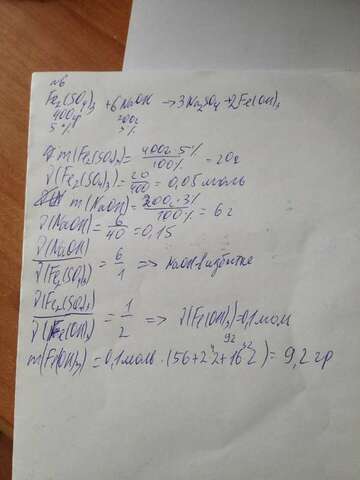 №6
Fe₂(SO₄)₃ + 6NaOH → 3Na₂SO₄ + 2Fe(OH)₃
400г 200г
5% 3%
m(Fe₂(SO₄)₃) = 400г·5% / 100% = 20г
ν(Fe₂(SO₄)₃) = 20/400 = 0,05 моль
m(NaOH) = 200г·3% / 100% = 6г
ν(NaOH) = 6/40 = 0,15
ν(NaOH) / ν(Fe₂(SO₄)₃) = 6/1 => NaOH-в
ν(Fe₂(SO₄)₃) / ν(Fe(OH)₃) = 1/2 => ν(Fe(OH)₃) = 0,1 мол
92 32
m(Fe(OH)₃) = 0,1 моль · (56+2·2+16·2) = 9,2 гр